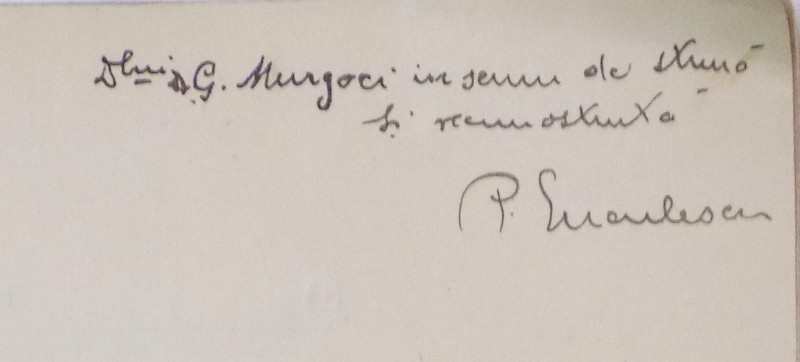 Dlui Dr G. Murgoci in semn de stimă
și recunoștință
P. Enculescu